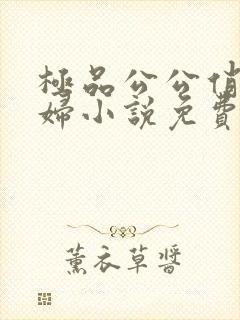 極品公公俏
婦小説免費
薰衣草醬